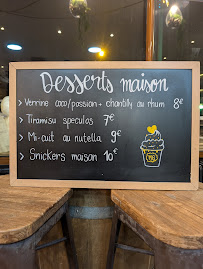 Desserts maison
> Verrine coco/passion + chantilly au rhum 8€
> Tiramisu speculos 7€
> Mi-cuit au nutella 9€
> Snickers maison 10€